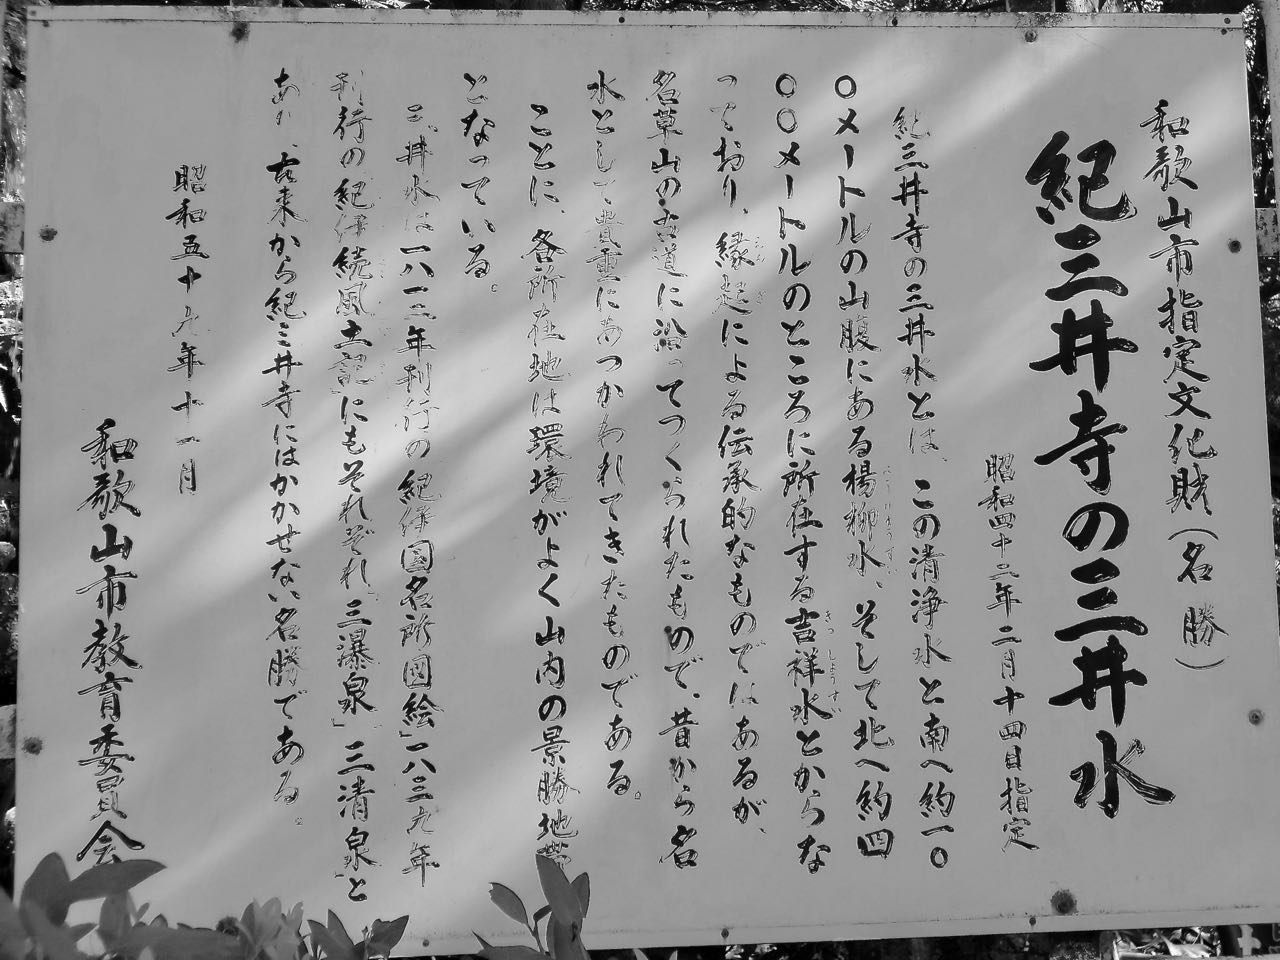 和歌山市指定文化財(名勝)
紀三井寺の三井水
昭和四十二年二月十四日指定
紀三井寺の三井水とは、この清浄水と南へ約一〇
〇メートルの山腹にある楊柳水、そして北へ約四
〇〇メートルのところに所在する吉祥水とからな
っており、縁起による伝承的なものではあるが、
名草山の古道に沿ってつくられたもので、昔から名
水として貴重にあつかわれてきたものである。
ことに、各所在地は環境がよく山内の景勝地帯
となっている。
三井水は一八一二年刊行の紀伊国名所図絵」一八三九年
刊行の紀伊続風土記」にもそれぞれ「三瀑泉」三清泉」と
あり、古来から紀三井寺にはかかせない名勝である。
昭和五十九年十一月
和歌山市教育委員会